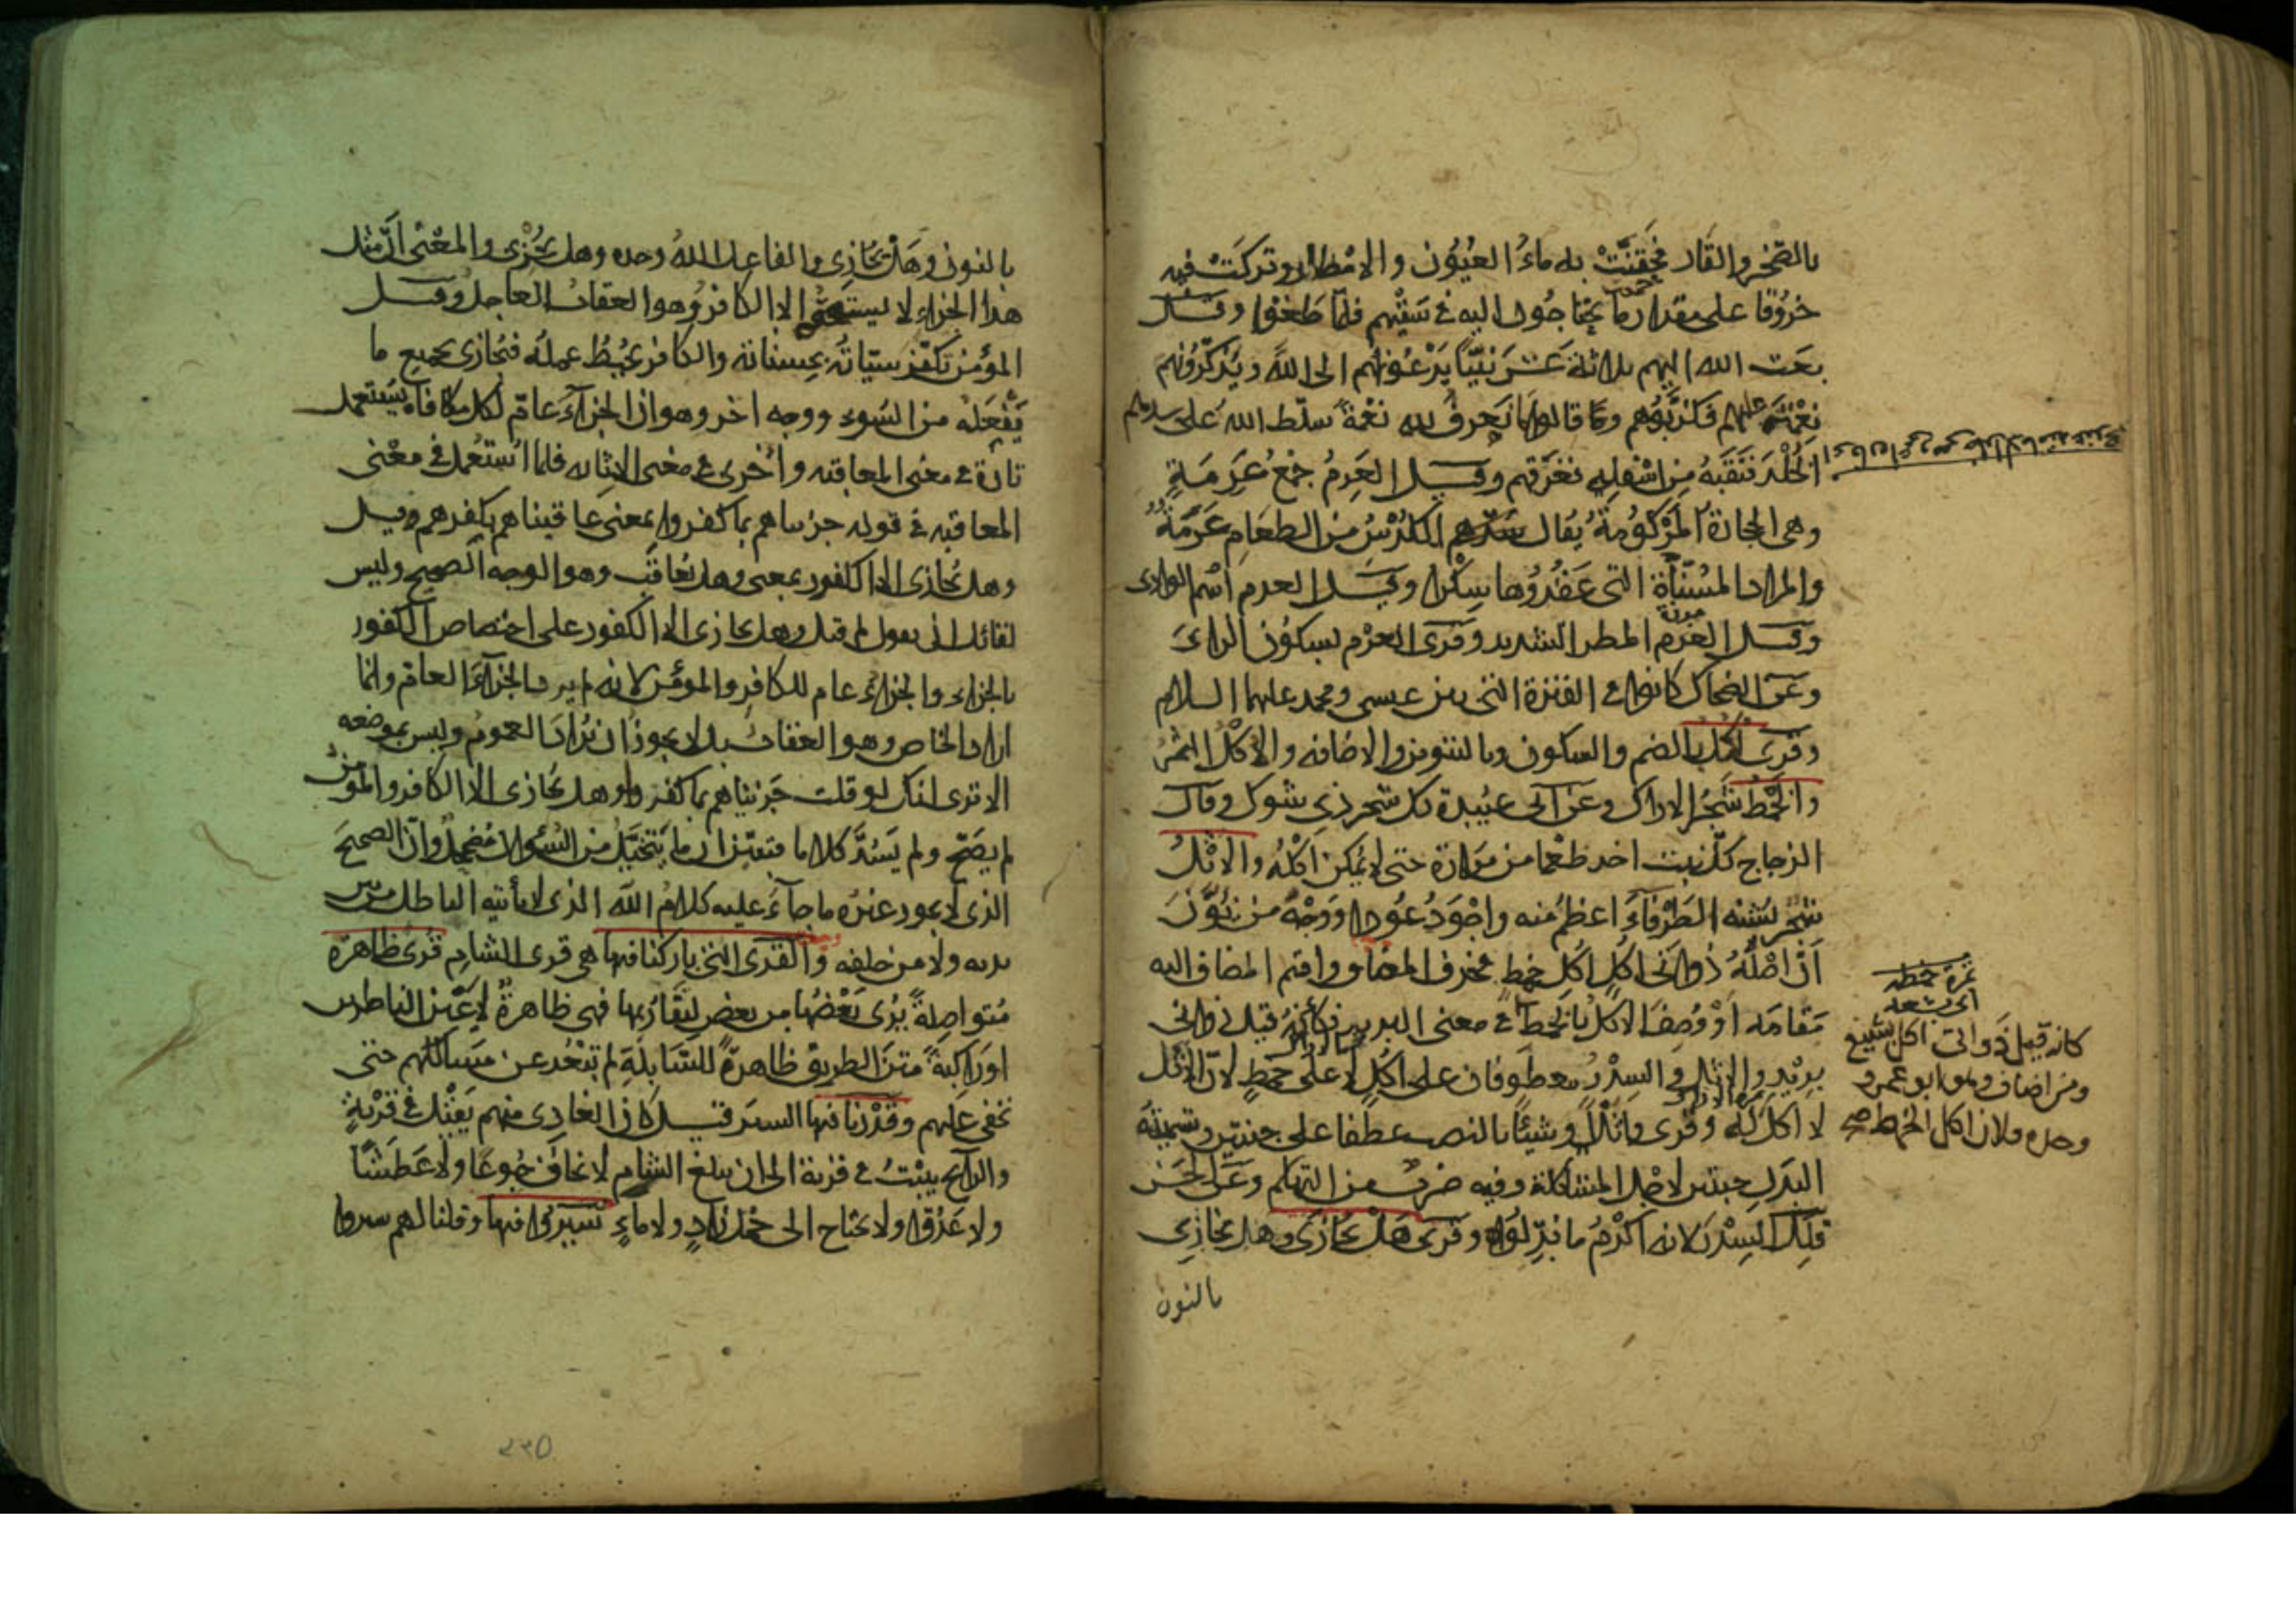 بالصخر والقار فحقنت به ماء العيون والامطار وتركت فيه
خروقا على مقدار ما يحتاجون اليه في سقيهم فلما طغوا وقيل
بعث الله اليهم ثلاثة عشر نبيا يدعونهم الى الله ويذكرونهم
نعمته عليهم فكذبوهم وقالوا ما نعرف لله نعمة سلط الله على سدهم
الخلد فنقبه من اسفله فغرقهم وقيل العرم جمع عرمة
وهي الحجارة المركومة يقال للكدس من الطعام عرمة
والمراد المسناة التي عقدوها سكرا وقيل العرم اسم الوادي
وقيل العرم المطر الشديد وقرى العرم بسكون الراء
وعن الضحاك كانوا في الفترة التي بين عيسى ومحمد عليهما السلام
وقرى اكل بالضم والسكون وبالتنوين والاضافه والاكل الثمر
والخمط شجر الاراك وعن ابي عبيدة كل شجر ذي شوك وقال
الزجاج كل نبت اخذ طعما من مرارة حتى لا يمكن اكله والاثل
شجر يشبه الطرفاء اعظم منه واجود عودا ووجه من نون
ان اصله ذواتي اكل اكل خمط فحذف المضاف واقيم المضاف اليه
مقامه او وصف الاكل بالخمط كأنه قيل ذواتي
والاثل والسدر معطوفان على اكل لا على خمط لان الاثل
لا اكل له وقرى واثلا وشيئا بالنصب عطفا على جنتين وتسمية
البدل جنتين لاجل المشاكلة وفيه ضرب من التهكم وعن الحسن
قلل السدر لانه اكرم ما بدلوا وقرى هل يجازى وهل نجازي
بالنون
ثمرة خمطه
اي بشعه
كانه قيل ذواتى اكل بشيع
ومن اضاف وهو ابو عمرو
وحده فلان اكل الخمط صح
بالنون وهل يجازي والفاعل الله وحده وهل يجزى والمعنى ان مثل
هذا الجزاء لا يستحقه الا الكافر وهو العقاب العاجل وقيل
المؤمن تكفر سيئاته بحسناته والكافر يحبط عمله فيجازى بجميع ما
يفعله من السوء ووجه اخر وهو ان الجزاء عام لكل مكافاة يستعمل
تارة في معنى المعاقبه واخرى في معنى الاثابه فلما استعمل في معنى
المعاقبه في قوله جزيناهم بما كفروا بمعنى عاقبناهم بكفرهم وقيل
وهل يجازى الا الكفور بمعنى وهل يعاقب وهو الوجه الصحيح وليس
لقائل ان يقول لم قيل وهل يجازى الا الكفور على اختصاص الكفور
بالجزاء والجزاء عام للكافر والمؤمن لانه لم يرد الجزاء العام وانما
اراد الخاص وهو العقاب بل لا يجوز ان يراد العموم وليس بموضعه
الا ترى انك لو قلت جزيناهم بما كفروا وهل يجازى الا الكافر والمؤمن
لم يصح ولم يسد كلاما فتبين ان ما يتخيل من السؤال مضمحل وان الصحيح
الذي لا يجوز غيره ما جاء عليه كلام الله الذي لا يأتيه الباطل من بين
يديه ولا من خلفه والقرى التي باركنا فيها هي قرى الشام قرى ظاهرة
متواصلة يرى بعضها من بعض لتقاربها فهي ظاهرة لاعين الناظرين
او راكبة متن الطريق ظاهرة للسابلة لم تبعد عن مسالكهم حتى
تخفى عليهم وقدرنا فيها السير قيل كان الغادي منهم يقيل في قرية
والرائح يبيت في قرية الى ان يبلغ الشام لا يخاف جوعا ولا عطشا
ولا عدوا ولا يحتاج الى حمل زاد ولا ماء سيروا فيها وقلنا لهم سيروا